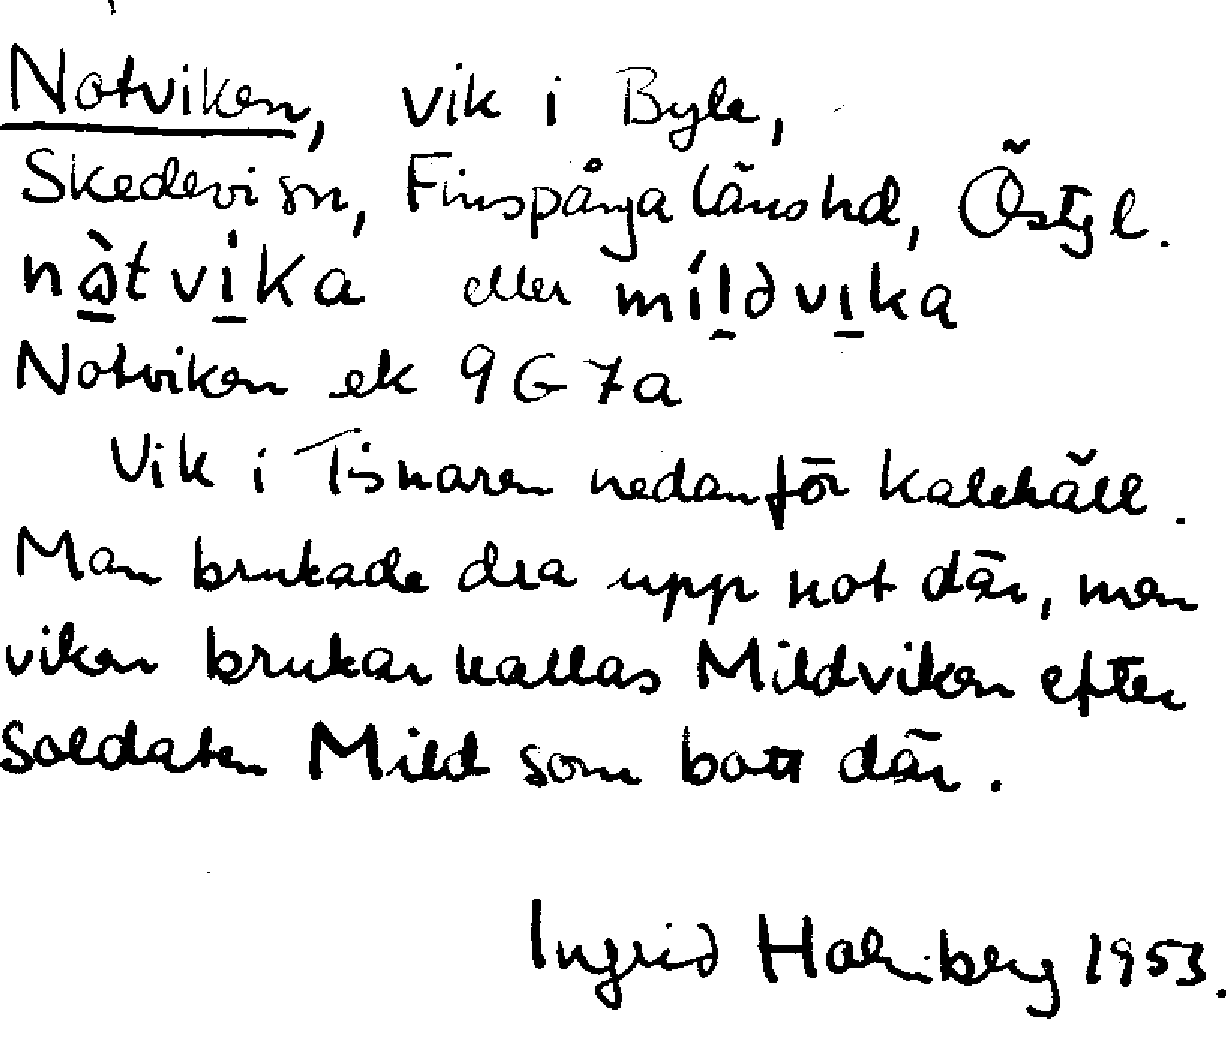 Notviken, vik i Byle,
Skedevi sn, Finspånga länshd, Östgl.
nàtvika eller míldvika
Notviken ek 9G7a
Vik i Tisnaren nedanför Kalehäll.
Man brukade dra upp not där, men
viken brukar kallas Mildviken efter
soldaten Mild som bott där.
Ingrid Holmberg 1953.